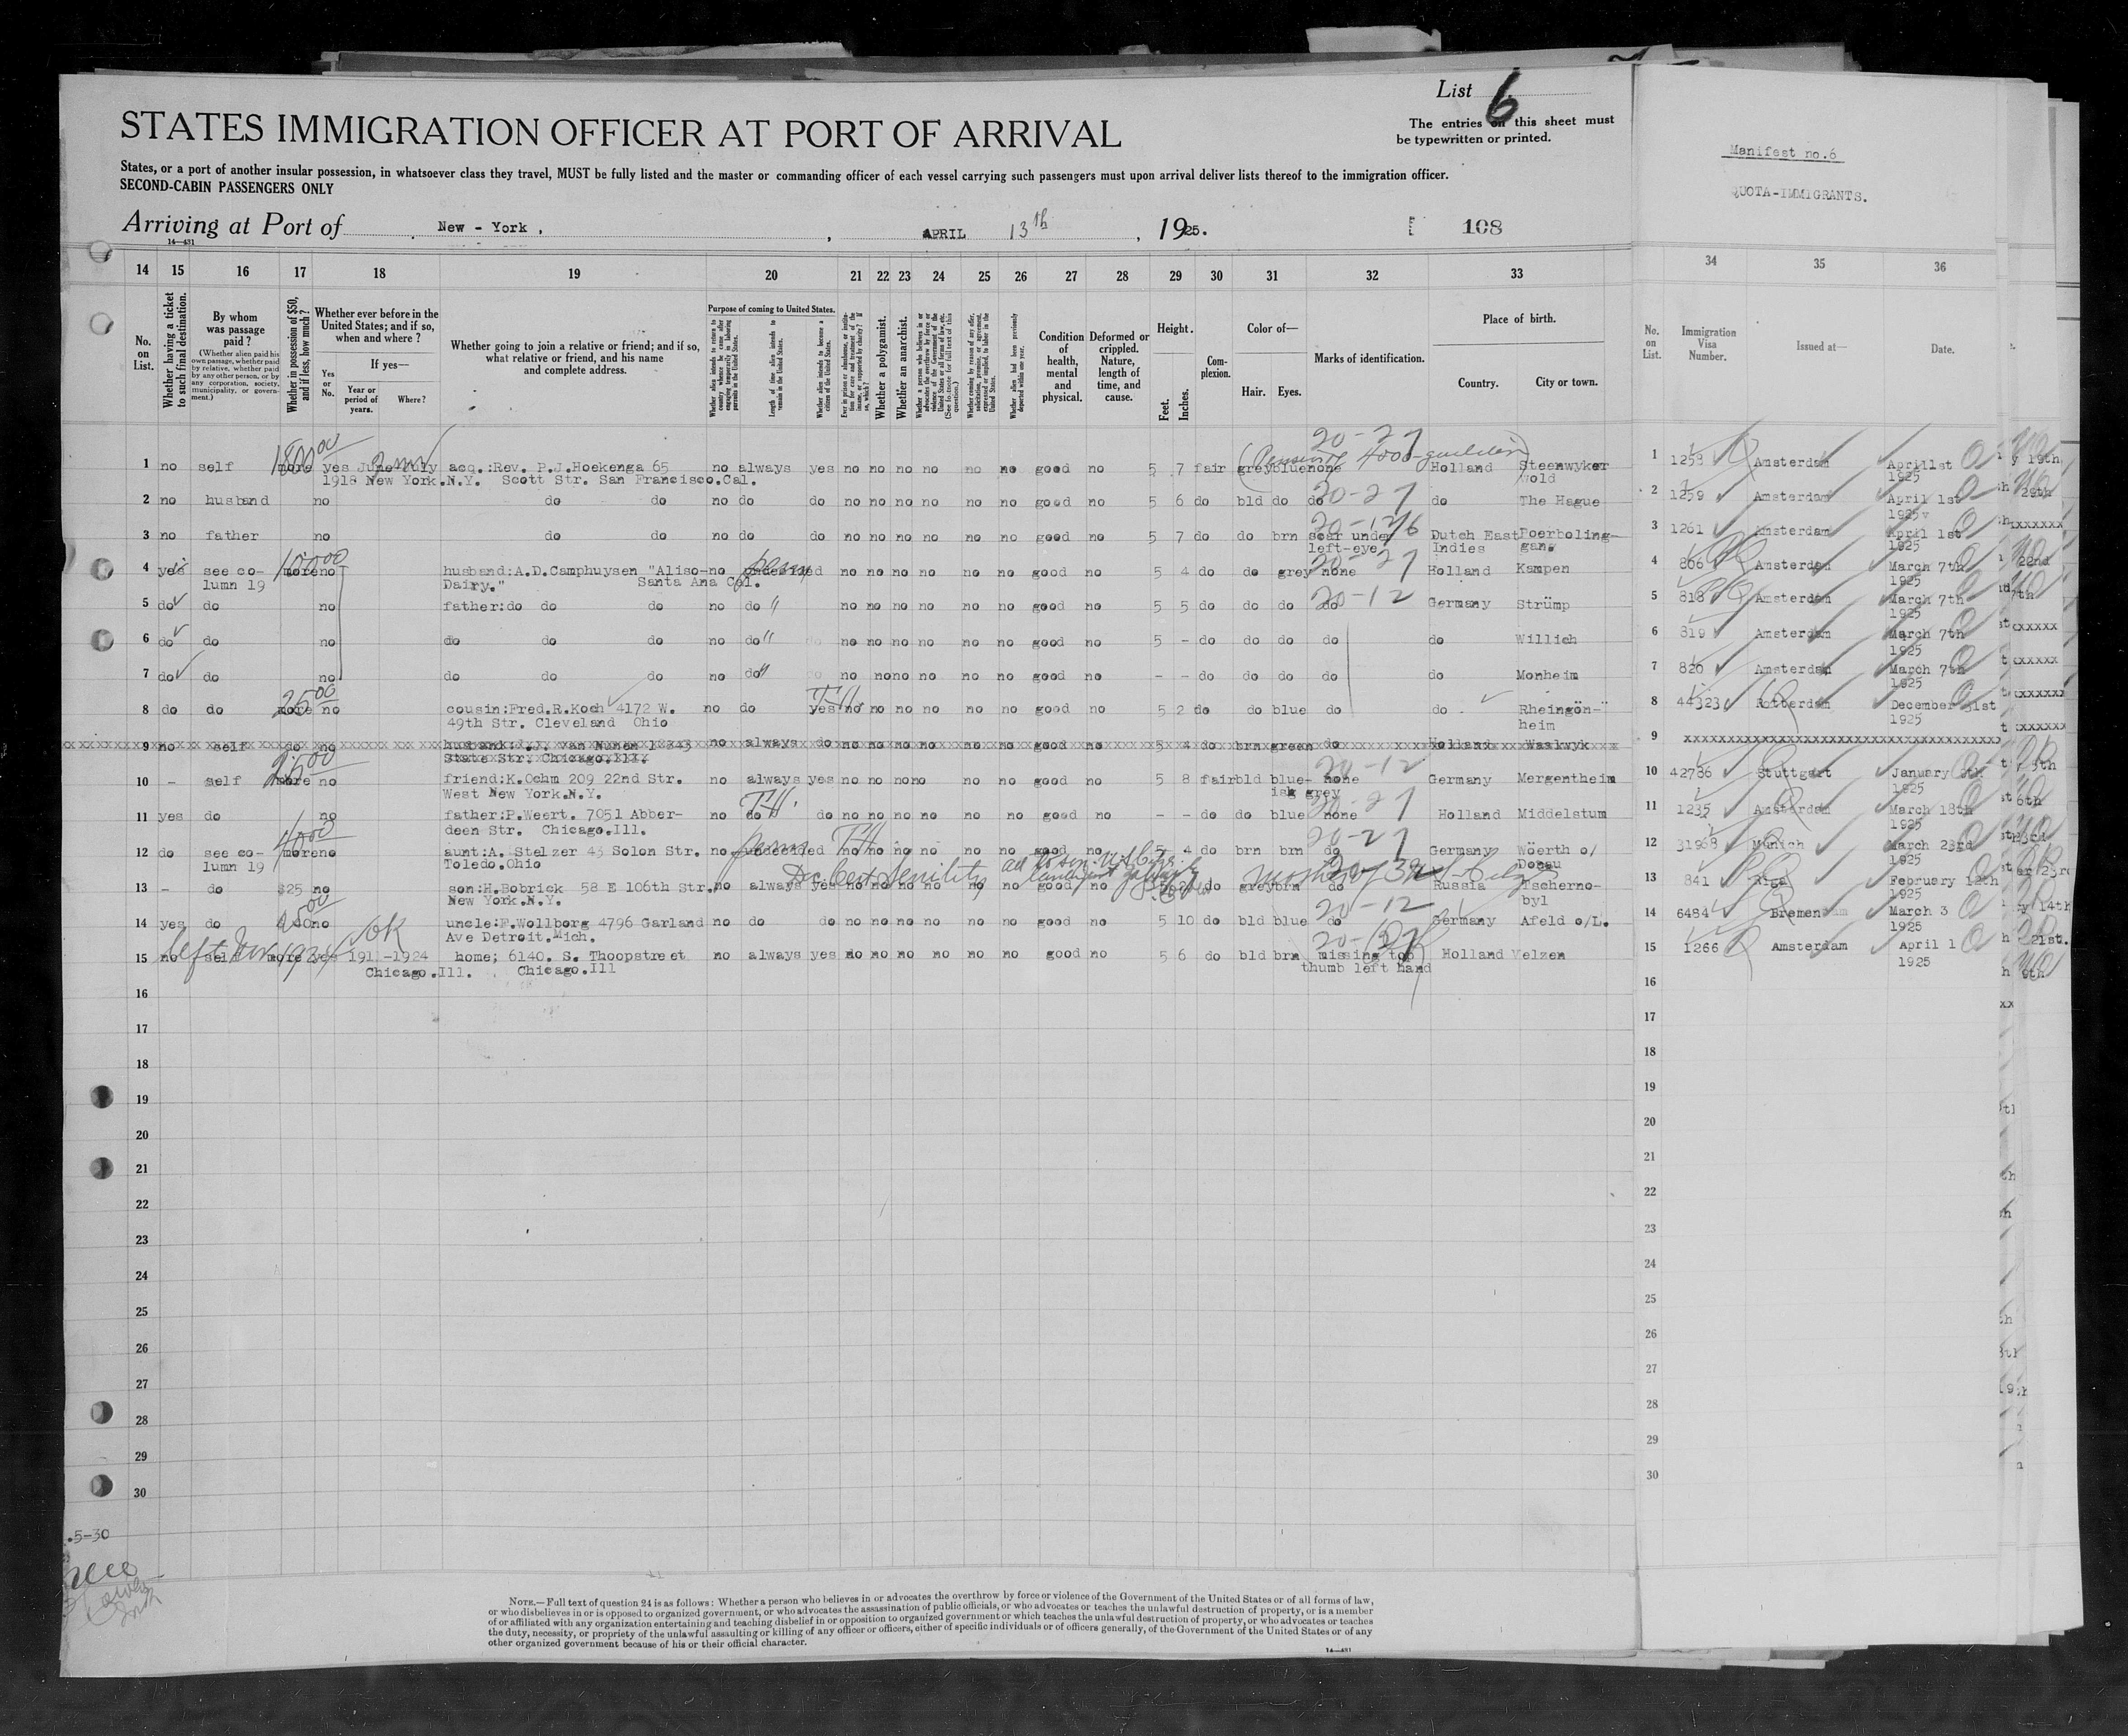 List 6
STATES IMMIGRATION OFFICER AT PORT OF ARRIVAL
The entries on this sheet must
be typewritten or printed.
States, or a port of another insular possession, in whatsoever class they travel, MUST be fully listed and the master or commanding officer of each vessel carrying such passengers must upon arrival deliver lists thereof to the immigration officer.
SECOND-CABIN PASSENGERS ONLY
Arriving at Port of New - York , , APRIL 13th , 1925. 108
14—431
Manifest no.6
QUOTA-IMMIGRANTS.
14 15 16 17 18 19 20 21 22 23 24 25 26 27 28 29 30 31 32 33
34 35 36
No. on List.
Whether having a ticket to such final destination.
By whom was passage paid?
(Whether alien paid his own passage, whether paid by relative, whether paid by any other person, or by any corporation, society, municipality, or government.)
Whether in possession of $50, and if less, how much?
Whether ever before in the United States; and if so, when and where?
If yes—
Yes or No.
Year or period of years.
Where?
Whether going to join a relative or friend; and if so, what relative or friend, and his name and complete address.
Purpose of coming to United States.
Length of time alien intends to remain in the United States.
Whether alien intends to become a citizen of the United States.
Whether a polygamist.
Whether an anarchist.
Condition of health, mental and physical.
Deformed or crippled. Nature, length of time, and cause.
Height.
Feet. Inches.
Complexion.
Color of—
Hair. Eyes.
Marks of identification.
Place of birth.
Country. City or town.
No. on List.
Immigration Visa Number.
Issued at—
Date.
1 no self 1800.00 more yes June-July acq.:Rev. P.J.Hoekenga 65 no always yes no no no no no no good no 5 7 fair grey blue none Holland Steenwyker
1918 New York.N.Y. Scott Str. San Francisco.Cal. wold
20-27
2 no husband no do do no do do no no no no no no good no 5 6 do bld do do do The Hague
20-27
3 no father no do do no do do no no no no no no good no 5 7 do do brn scar under Dutch East Poerboling-
left-eye Indies gan.
4 yes see co- more no husband:A.D.Camphuysen "Aliso- no undecided no no no no no no good no 5 4 do do grey none Holland Kampen
lumn 19 Dairy." Santa Ana Cal.
20-27
5 do do no father:do do do no do " no no no no no no good no 5 5 do do do do Germany Strümp
20-12
6 do do no do do do no do " no no no no no no good no 5 - do do do do do Willich
7 do do no do do do no do " no no no no no no good no - - do do do do do Monheim
25.00
8 do do more no cousin:Fred.R.Koch 4172 W. no do yes no no no no no no good no 5 2 do do blue do do Rheingön-
49th Str. Cleveland Ohio heim
9 no self do no husband: van Nunen State Str. Chicago.Ill. no always do no no no no no no good no 5 4 do brn green do Holland Waalwyk
20-12
10 - self more no friend:K.Oehm 209 22nd Str. no always yes no no no no no no good no 5 8 fair bld blue- none Germany Mergentheim
West New York.N.Y. ish grey
20-27
11 yes do no father:P.Weert. 7051 Abber- no do do no no no no no no good no - - do do blue none Holland Middelstum
deen Str. Chicago.Ill.
20-27
12 do see co- more no aunt:A. Stelzer 45 Solon Str. no undecided no no no no no no good no 5 4 do brn brn do Germany Wöerth o/
lumn 19 Toledo.Ohio Donau
13 - do $25 no son:H.Bobrick 58 E 106th Str. no always yes no no no no no no good no 5 2 do grey brn do Russia Tscherno-
New York.N.Y. byl
20-12
14 yes do $40 no uncle:F.Wollborg 4796 Garland no do do no no no no no no good no 5 10 do bld blue do Germany Afeld o/L.
Ave Detroit.Mich.
left 1924 OK
15 no self more yes 1911-1924 home; 6140. S. Thoopstreet no always yes no no no no no no good no 5 6 do bld brn missing top Holland Velzen
Chicago.Ill. Chicago.Ill thumb left hand
16
17
18
19
20
21
22
23
24
25
26
27
28
29
30
1 1258 Amsterdam April 1st 1925
2 1259 Amsterdam April 1st 1925
3 1261 Amsterdam April 1st 1925
4 806 Amsterdam March 7th 1925
5 818 Amsterdam March 7th 1925
6 819 Amsterdam March 7th 1925
7 820 Amsterdam March 7th 1925
8 44323 Rotterdam December 31st 1925
9 xxxxxxxxxxxxxxxxxxxxxxxxxxxxxxxxxxx
10 42786 Stuttgart January 1925
11 1235 Amsterdam March 18th 1925
12 31968 Munich March 23rd 1925
13 841 Riga February 12th 1925
14 6484 Bremen March 3 1925
15 1266 Amsterdam April 1 1925
16
17
18
19
20
21
22
23
24
25
26
27
28
29
30
.5-30
NOTE.—Full text of question 24 is as follows: Whether a person who believes in or advocates the overthrow by force or violence of the Government of the United States or of all forms of law,
or who disbelieves in or is opposed to organized government, or who advocates the assassination of public officials, or who advocates or teaches the unlawful destruction of property, or is a member
of or affiliated with any organization entertaining and teaching disbelief in or opposition to organized government or which teaches the unlawful destruction of property, or who advocates or teaches
the duty, necessity, or propriety of the unlawful assaulting or killing of any officer or officers, either of specific individuals or of officers generally, of the Government of the United States or of any
other organized government because of his or their official character.
14—431